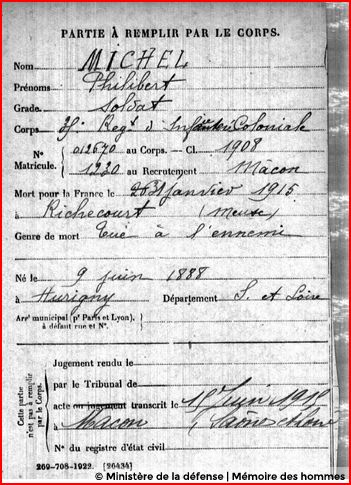 PARTIE À REMPLIR PAR LE CORPS.
Nom MICHEL
Prénoms Philibert
Grade Soldat
Corps Regt d'Infanterie Coloniale
N° 012670 au Corps. — Cl. 1908
Matricule. 1220 au Recrutement Mâcon
Mort pour la France le janvier 1915
à Richecourt (Meuse)
Genre de mort Tué à l'ennemi
Né le 9 juin 1888
à Hurigny Département S. et Loire
Arrt municipal (pr Paris et Lyon),
à défaut rue et N°.
Cette partie
n'est pas à remplir
par le Corps.
Jugement rendu le
par le Tribunal de
acte ou jugement transcrit le juin
à Macon (Saône et Loire
N° du registre d'état civil
269-708-1922. [26434]
© Ministère de la défense | Mémoire des hommes